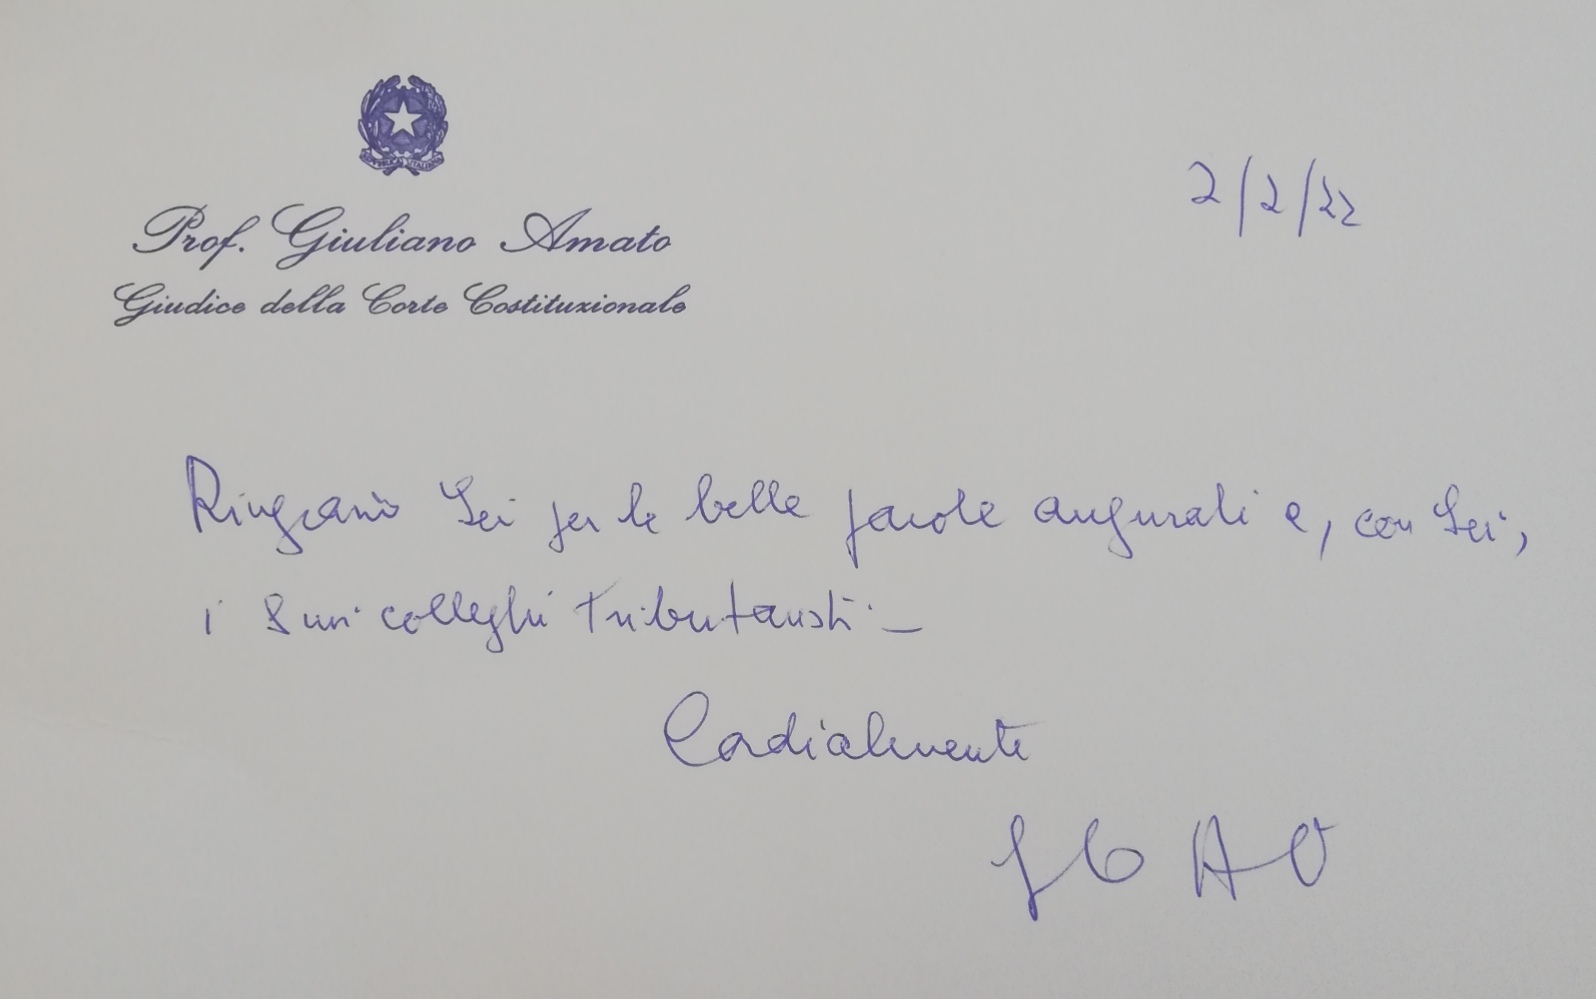 REPVBBLICA ITALIANA
Prof. Giuliano Amato
Giudice della Corte Costituzionale
2/2/22
Ringrazio Lei per le belle parole augurali e, con Lei,
i Suoi colleghi tributaristi –
Cordialmente